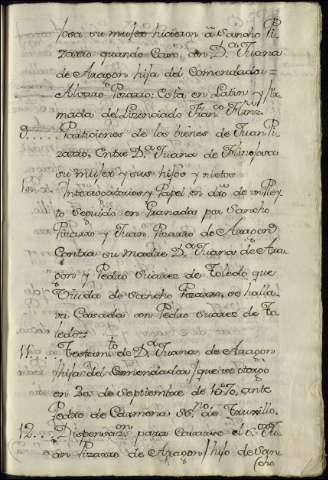 josa su muger hicieron a Sancho Pi-
zarro quando Caso, con D.ª Juana
de Aragon hija del Comendador
Alvaro Pizarro: Esta, en Latin y fir-
mada del Lizenciado Fran.co
9.... Particiones de los bienes de Juan Pi-
zarro, entre D.ª Juana de Hinojosa
su muger y sus hijos y nietos
10... Interrogatorios y Papel en dro de un Pley-
to seguido en Granada por Sancho
Pizarro y Juan Pizarro de Aragon
Contra su madre D.ª Juana de Ara-
gon y Pedro Suarez de Toledo que
Viuda de Sancho Pizarro, se halla-
va Casada con Pedro Suarez de To-
ledo:
11... Testam.to de D.ª Juana de Aragon
hija del Comendador / que se otorgo
en 20 de Septiembre de ante
Pedro de Carmona Ss.no de Truxillo.
12... Dispensaz.on para Casarse el Ju-
an Pizarro de Aragon / hijo de San-
cho